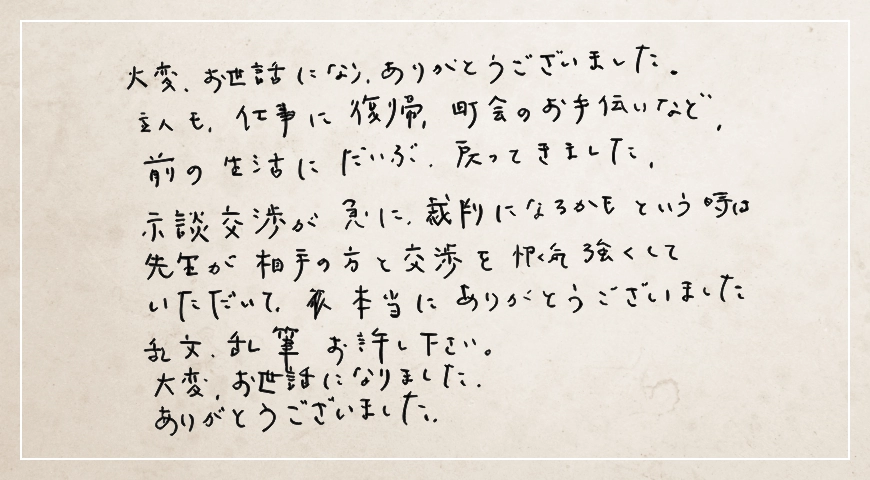 大変、お世話になり、ありがとうございました。
主人も、仕事に復帰、町会のお手伝いなど、
前の生活にだいぶ、戻ってきました、
示談交渉が急に、裁判になるかもという時は
先生が相手の方と交渉を根気強くして
いただいて、本当にありがとうございました
乱文、乱筆お許し下さい。
大変、お世話になりました、
ありがとうございました、